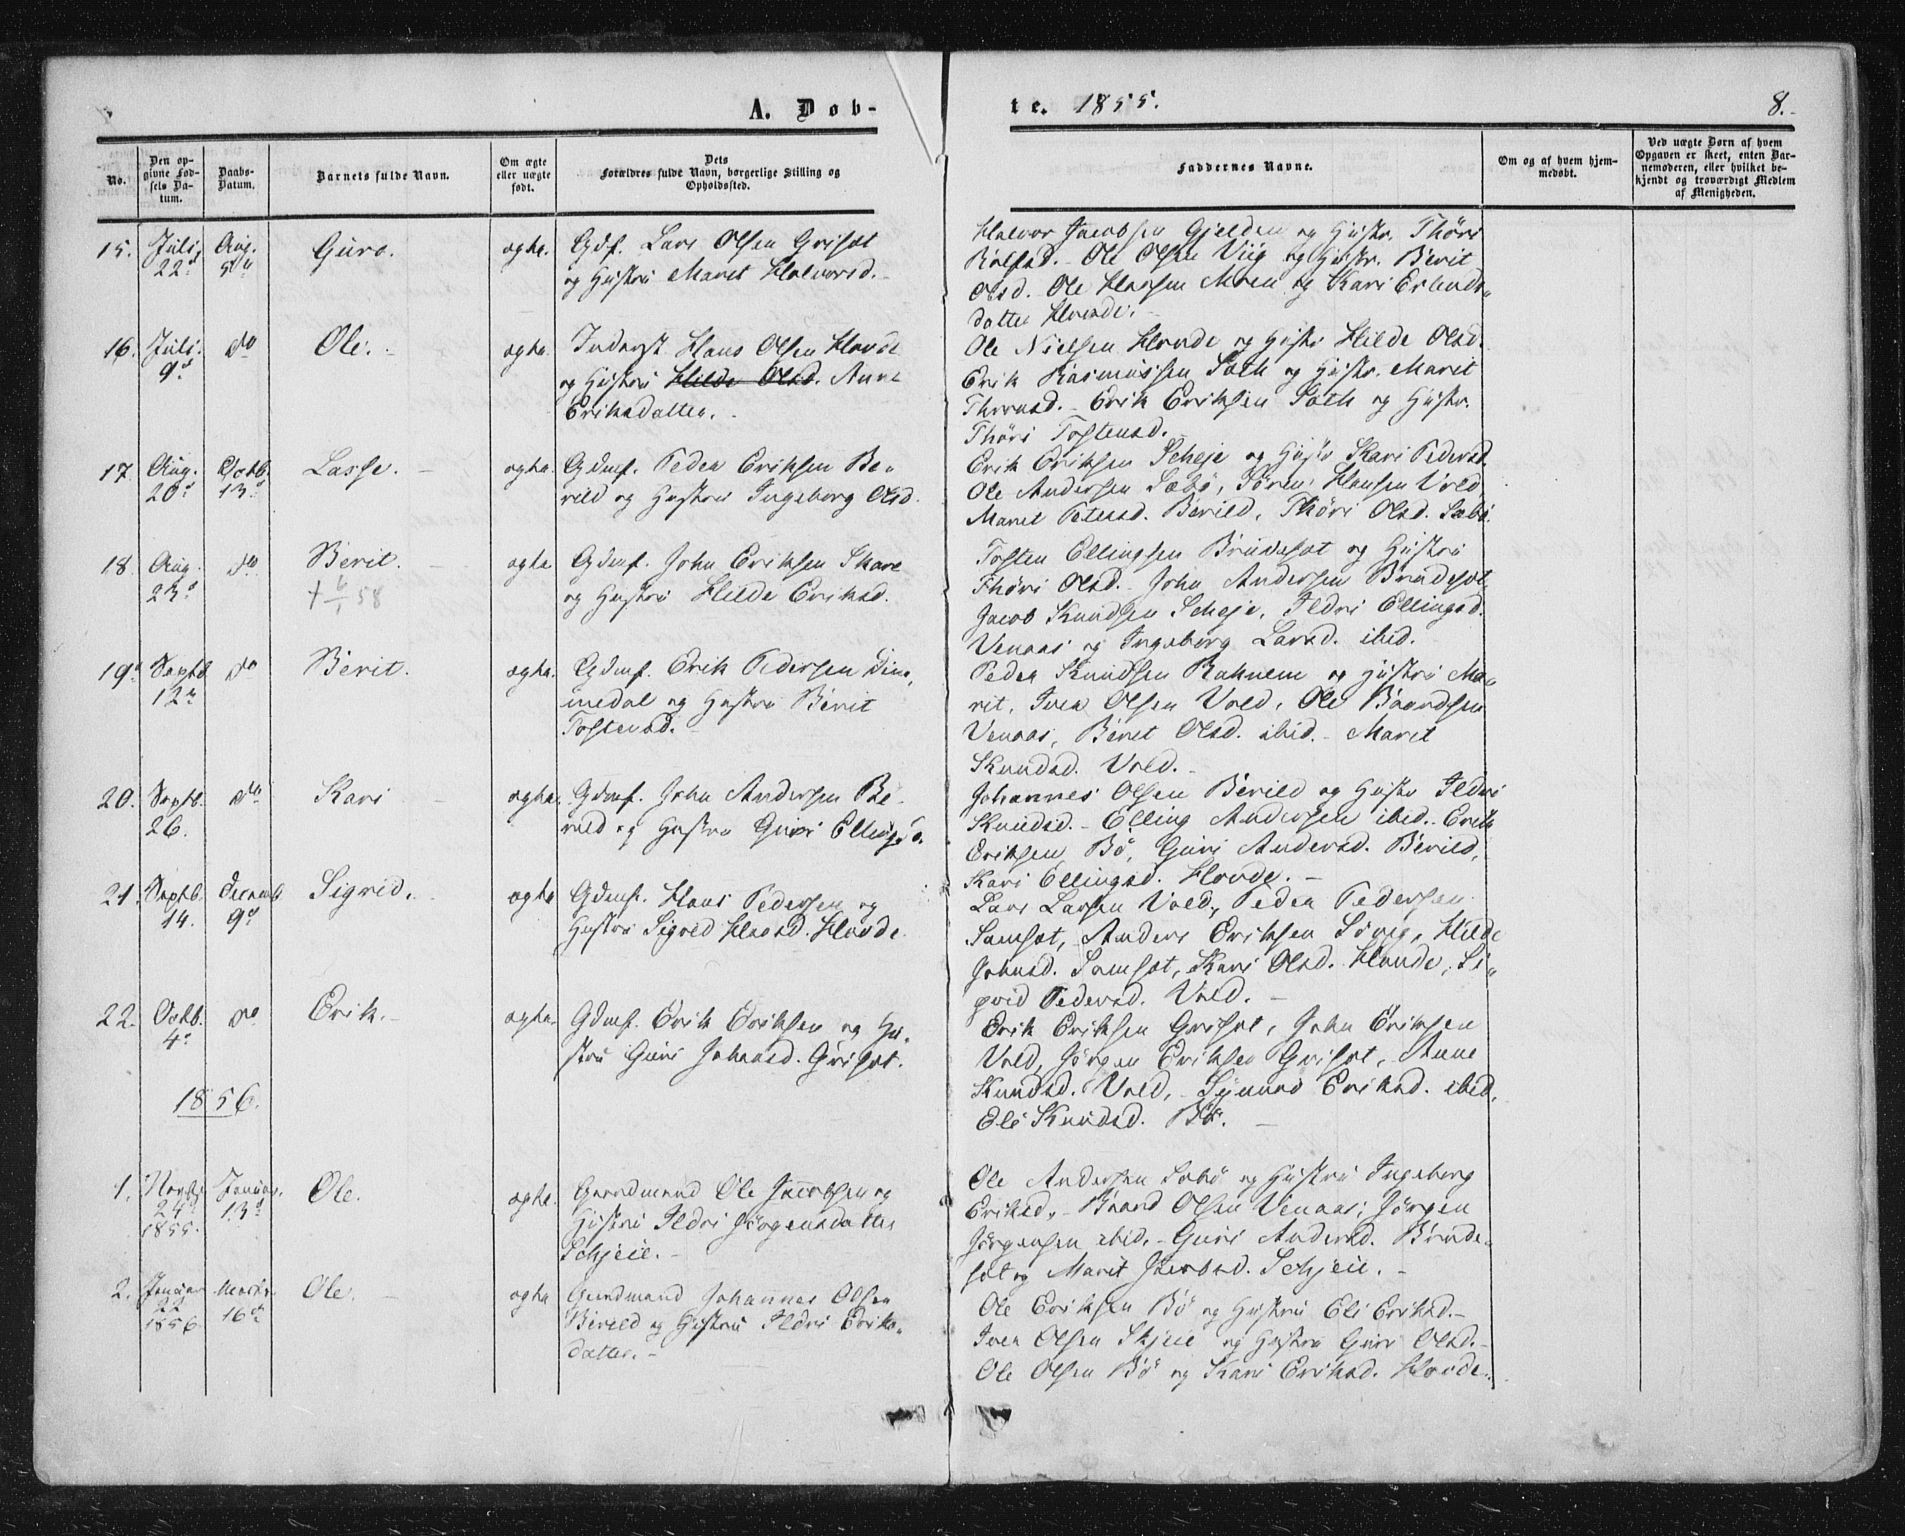 A. Døb-
te. 1855.
8.
No.
Den op-
givne Fød-
sels Da-
tum.
Daabs-
Datum.
Barnets fulde Navn.
Om ægte
eller uægte
født.
Dets
Forældres fulde Navn, borgerlige Stilling og
Opholdssted.
Faddernes Navne.
Om og af hvem hjem-
medøbt.
Ved uægte Børn af hvem
Opgaven er skeet, enten Bar-
nemoderen, eller hvilket be-
kjendt og troværdigt Medlem
af Menigheden.
15. Juli 22d Aug. 5te Guro. ægte. Gdf. Lars Olsen Grisæt
og Hustru Marit Halvorsd.
Halvor Jacobsen Gjelden og Hustr. Thöri
Rolfsd. Ole Olsen Viig og Hustr. Berit
Olsd. Ole Hansen Moen og Kari Erlends-
datter Hovde.
16. Juli 9d do Ole. ægte. Inderst Hans Olsen Hovde
og Hustru Hilde Olsd. Anne
Eriksdatter.
Ole Nielsen Hovde og Hustr Hilde Olsd.
Erik Rasmussen Soth og Hustr. Marit
Thorsd. Erik Eriksen Soth og Hustr.
Thöri Tostensd.
17 Aug. 20d Octb. 13d Lasse. ægte. Gdmf. Peder Eriksen Be-
rild og Hustru Ingeborg Olsd.
Erik Eriksen Scheje og Hustr Kari Pedersd.
Ole Andersen Sæbö, Sören Hansen Vold,
Marit Petersd. Berild, Thöri Olsd. Sæbö.
18 Aug. 23d do Berit. ægte Gdmf. John Eriksen Skare
† 6/1 58
og Hustru Hilde Eriksd.
Tosten Ellingsen Brudesæt og Hustru
Thöri Olsd. John Andersen Brudesæt
Jacob Knudsen Scheje, Ildri Ellingsd.
Venaas og Ingeborg Larsd. ibid.
19. Septb. 12te do Berit. ægte. Gdmf. Erik Pedersen Dim-
medal og Hustru Berit
Tostensd.
Peder Knudsen Kahnem og Hustru Ma-
rit, Iver Olsen Vold, Ole Baardsen
Venaas, Berit Olsd. ibid. Marit
Knudsd. Vold.
20. Septb. 26. do Kari ægte. Gdmf. John Andersen Be-
rild og Hustru Guri Ellingsd.
Johannes Olsen Berild og Hustr Ildri
Knudsd. Elling Andersen ibid. Erik
Eriksen Bö, Guri Andersd. Berild,
Kari Ellingsd. Hovde.
21. Septb. 14. Decemb. 9d Sigrid. ægte Gdmf. Hans Pedersen og
Hustru Sigrid Hansd. Hovde.
Lars Larsen Vold, Peder Pedersen
Samsæt, Anders Eriksen Sövig, Hilde
Johnsd. Samsæt, Kari Olsd. Hovde, Si-
grid Pedersd. Vold.
22. Octb. 4de do Erik. ægte. Gdmf. Erik Eriksen og Hu-
stru Guri Johnsd. Grisæt.
Erik Eriksen Grisæt, John Eriksen
Vold, Jörgen Eriksen Grisæt, Anne
Knudsd. Vold, Synnöv Eriksd. ibid,
Eli Knudsd. Bö.
1856.
1. Novbr 24de 1855. Januar. 13d Ole. ægte. Gaardmand Ole Jacobsen og
Hustru Ildri Jörgensdatter
Schjeie.
Ole Andersen Sæbö og Hustru Ingeborg
Eriksd. Baard Olsen Venaas, Jörgen
Jörgensen ibid. Guri Andersd. Brude-
sæt og Marit Jacobsd. Schjeie.
2. Januar 22 1856 Marts. 16de Ole. ægte Gaardmand Johannes Olsen
Berild og Hustru Ildri Eriks-
datter.
Ole Eriksen Bö og Hustru Eli Eriksd.
Iver Olsen Skjeie og Hustru Guri Olsd.
Ole Olsen Bö og Kari Eriksd. Hovde.